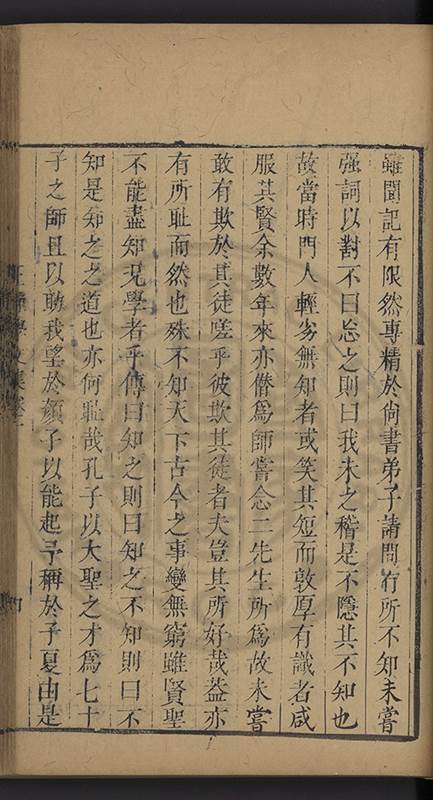 雖聞記有限然專精於尚書弟子請問有所不知未嘗
强詞以對不曰忘之則曰我未之稽是不隱其不知也
故當時門人輕劣無知者或笑其短而敦厚有識者咸
服其賢余數年來亦僭爲師嘗念二先生所爲故未嘗
敢有欺於其徒嗟乎彼欺其徒者夫豈其所好哉葢亦
有所耻而然也殊不知天下古今之事變無窮雖賢聖
不能盡知况學者乎傳曰知之則曰知之不知則曰不
知是知之之道也亦何耻哉孔子以大聖之才爲七十
子之師且以助我望於顏子以能起予稱於子夏由是